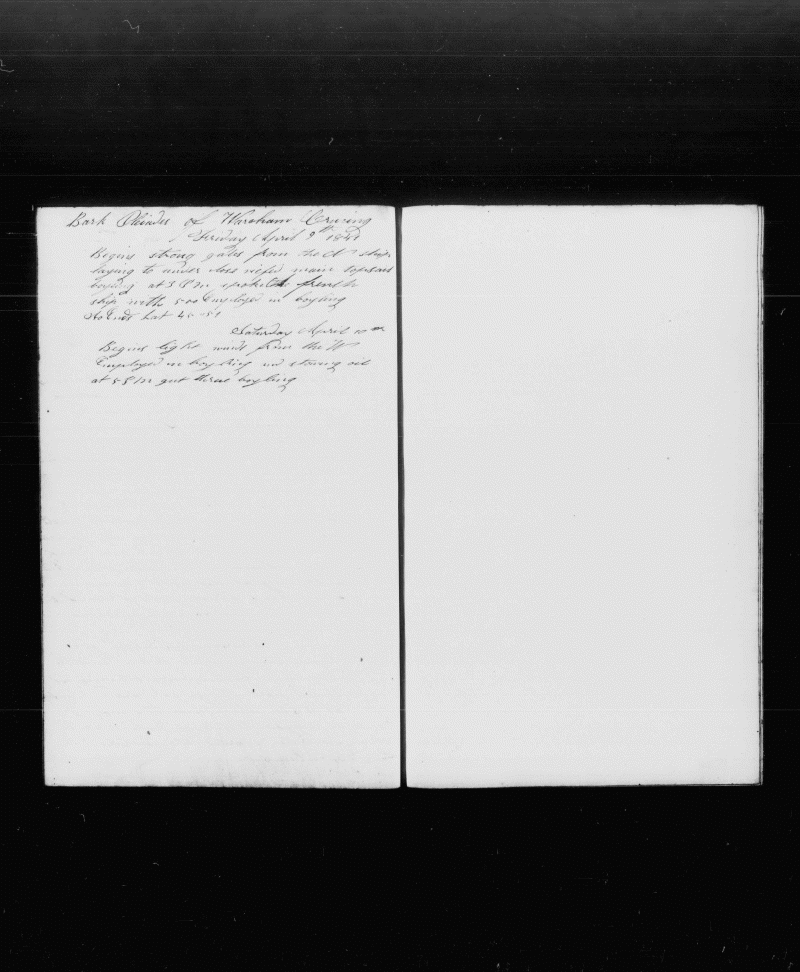 Bark Pleiades of Wareham Cruising
Friday April 9th 1841
Begins strong gales from the N ship
laying to under close reefd main topsail
boyling at 3 PM spoke the french
ship with 500 Employed in boyling
So Ends Lat 45-51
Saturday April 10th
Begins light winds from the W
Employed in boyling and stowing oil
at 5 PM got threw boyling